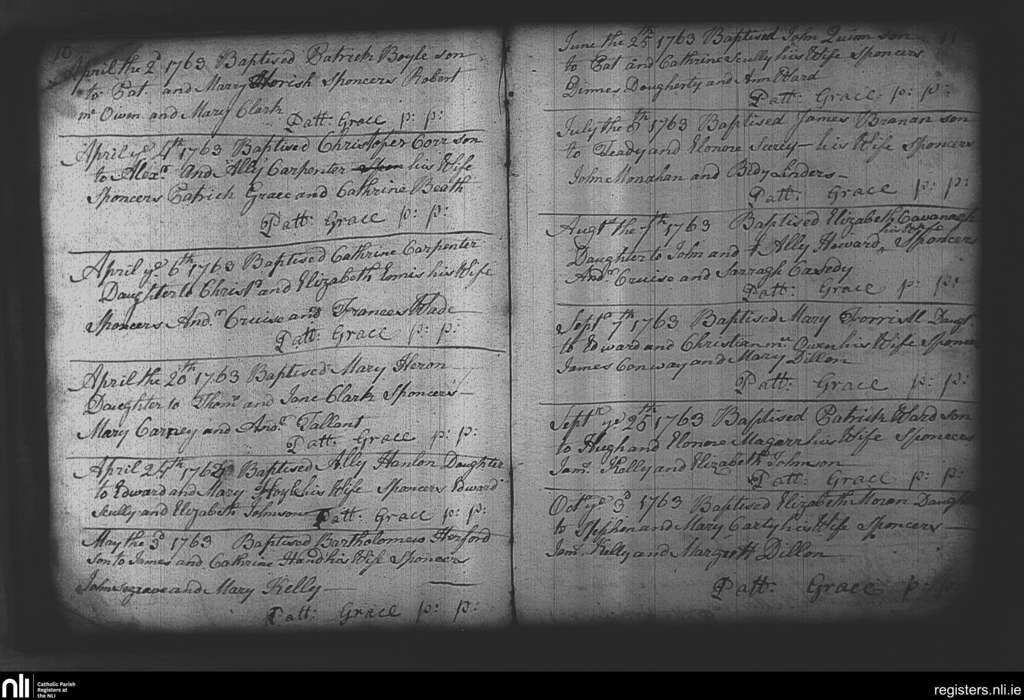 10
April the 2d 1763 Baptised Patrick Boyle son
to Pat. and Mary Horish Sponcers Robert
mc Owen and Mary Clark
Patt: Grace p: p:
April ye 4th 1763 Baptised Christopher Corr son
to Alexr And Ally Carpenter his Wife
Sponcers Patrick Grace and Cathrine Beath
Patt: Grace p: p:
April ye 6th 1763 Baptised Cathrine Carpenter
Daughter to Christr and Elizabeth Ennis his Wife
Sponcers Andw Cruise and Frances Wade
Patt: Grace p: p:
April the 20th 1763 Baptised Mary Heron
Daughter to Thoms and Jane Clark Sponcers
Mary Carney and Andw Tallant
Patt: Grace p: p:
April 24th 1763 Baptised Ally Hanlon Daughter
to Edward and Mary Hoyl his Wife Sponcers Edward
Scully and Elizabeth Johnson
Patt: Grace p: p:
May the 3d 1763 Baptised Bartholomew Horford
Son to James and Cathrine Hand his Wife Sponcers
John Segrave and Mary Kelly
Patt: Grace p: p:
11
June the 25th 1763 Baptised John Quinn son
to Pat and Cathrine Scully his Wife Sponcers
Dinnes Dougherty and Ann Ward
Patt: Grace p: p:
July the 8th 1763 Baptised James Branan son
to Teady and Elonore his Wife Sponcers
John Monahan and Bidy Linders
Patt: Grace p: p:
Augt the 7th 1763 Baptised Elizabeth Cavanagh
Daughter to John and Ally Howard his Wife Sponcers
Andw Cruise and Sarragh Casedy
Patt: Grace p: p:
Septr 7th 1763 Baptised Mary Daugt
to Edward and Christian mc Owen his Wife Sponce
James Conway and Mary Dillon
Patt: Grace p: p:
Septr ye 25th 1763 Baptised Patrick Ward son
to Hugh and Elonore Magarr his Wife Sponcers
Jams Kelly and Elizabeth Johnson
Patt: Grace p: p:
Octr ye 3d 1763 Baptised Elizabeth Moran Daught
to Stephen and Mary Carty his Wife Sponcers
Jams Kelly and Margrett Dillon
Patt: Grace p:
nli
Catholic Parish
Registers at
the NLI
registers.nli.ie